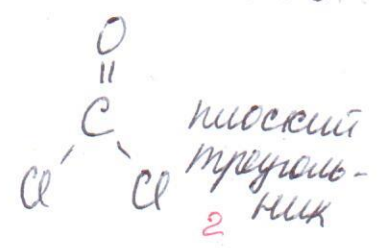 O
||
C
Cl Cl
плоский
треуголь-
ник
2